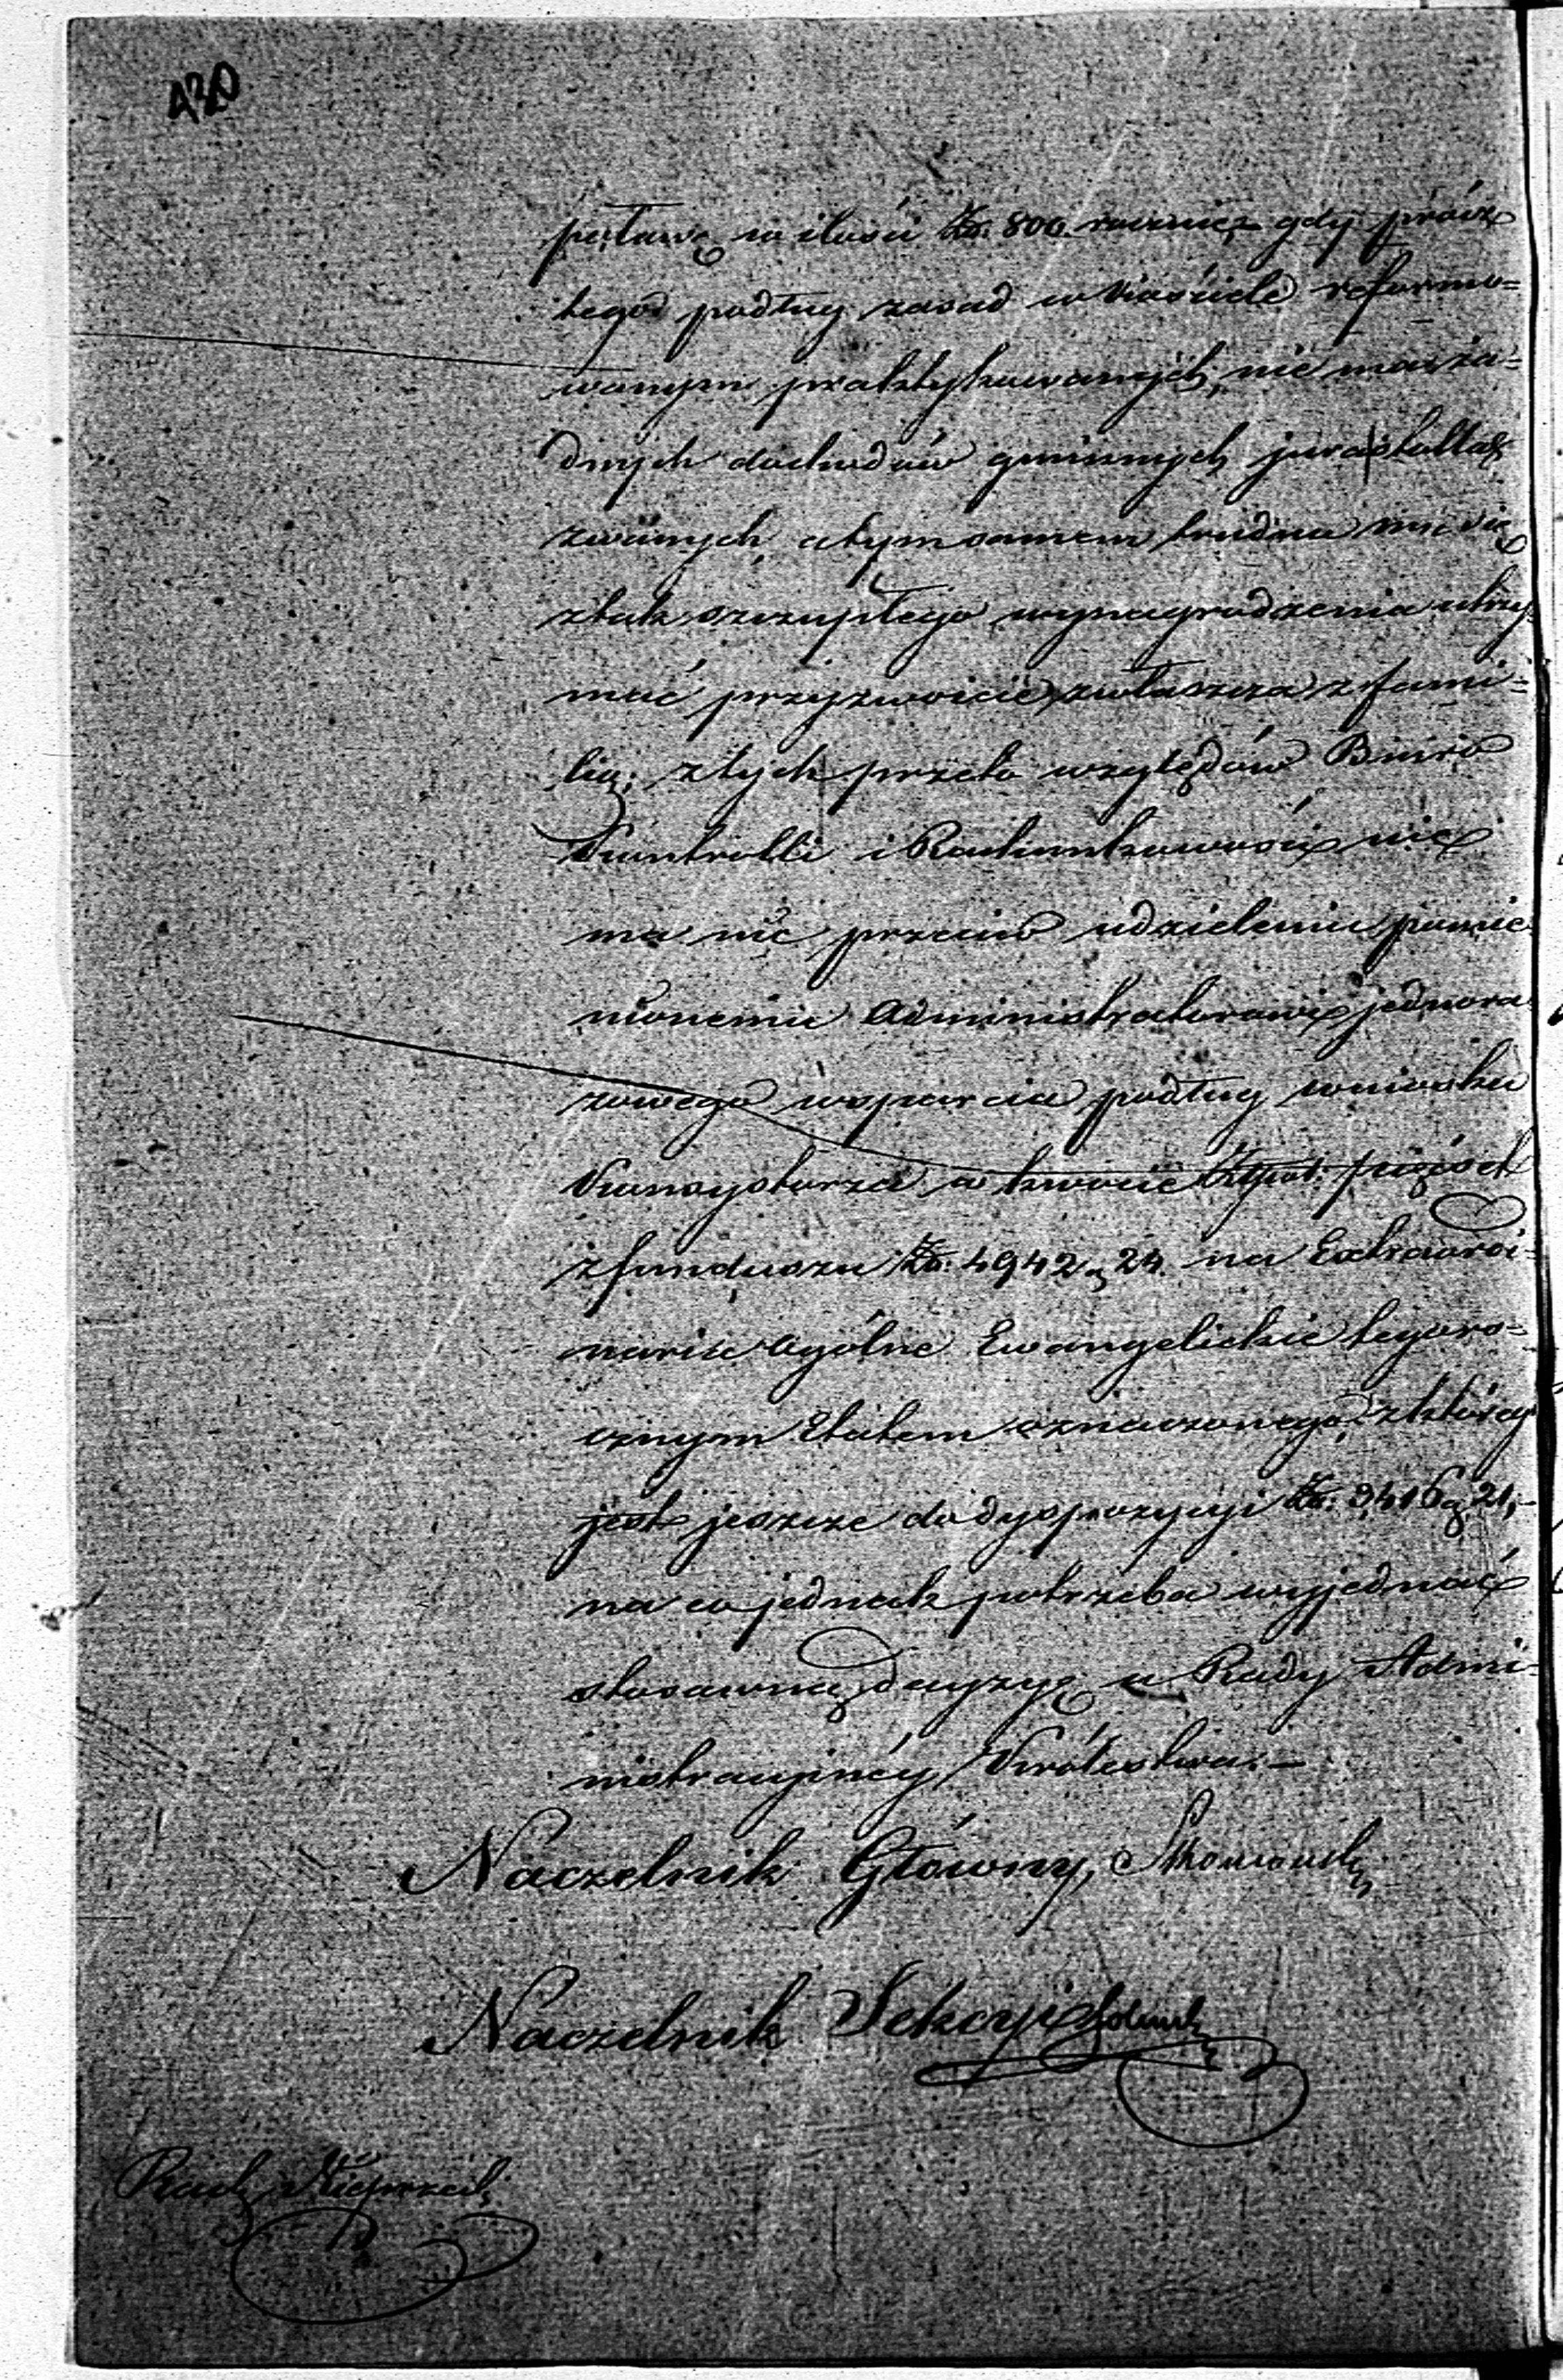 420
połowę w ilości Złr. 800 rocznie, gdy prócz
tego podług zasad w Kościele reformo=
wanym praktykowanych, nie ma ża=
dnych dochodów gminnych jura stollae
zwanych, a tym samem trudno mu się
z tak szczupłego wynagrodzenia utrzy
mać przyzwoicie, zwłaszcza z fami=
lią; z tych przeto względów Biuro
Kontrolli i Rachunkowości nie
ma nic przeciw udzieleniu pomie
nionemu Administratorowi jednora
zowego wsparcia podług wniosku
Konsystorza w kwocie Złpol. pięćset
z funduszu Zł. 4942 g 24. na Extraordi=
naria ogólne Ewangelickie tegoro=
cznym Etatem oznaczonego, z który
jest jeszcze do dyspozycyi Zł. 3416 g 21,—
na co jednak potrzeba wyjednać
stosowną decyzyę u Rady Admi=
nistracyjnéy Królestwa.—
Naczelnik Główny,
Naczelnik Sekcyi
Rach.